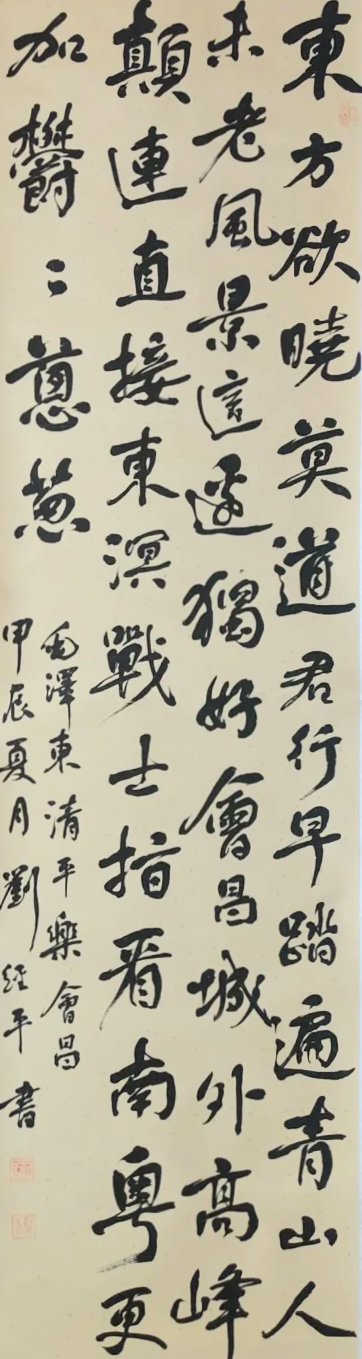 東方欲曉莫道君行早踏遍青山人
未老風景這邊獨好會昌城外高峰
顛連直接東溟戰士指看南粵更
加鬱〻蔥葱
毛澤東清平樂會昌
甲辰夏月劉經平書